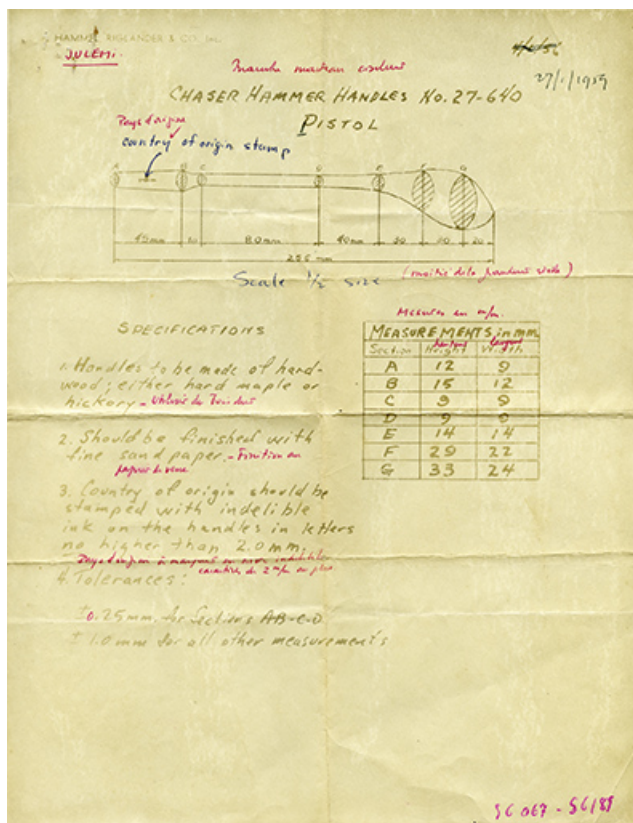 HAMMEL, RIGLANDER & CO., INC.
JULEMI.
27/1/1959
CHASER HAMMER HANDLES No. 27-640
PISTOL
Pays d'origine
country of origin stamp
A B C D E F G
45mm 10 80mm 40mm 30 30 20
255 mm
Scale 1/2 size
(moitié de la grandeur réelle)
Mesures en m/m.
MEASUREMENTS in mm
hauteur largeur
Section Height Width
A 12 9
B 15 12
C 9 9
D 9 9
E 14 14
F 29 22
G 33 24
SPECIFICATIONS
1. Handles to be made of hard-
wood; either hard maple or
hickory -
2. Should be finished with
fine sand paper. - Finition au
papier de verre
3. Country of origin should be
stamped with indelible
ink on the handles in letters
no higher than 2.0mm.
Pays d'origine à marquer en encre indélébile
caractères de 2 m/m au plus
4. Tolerances:
± 0.25mm. for Sections A-B-C-D
± 1.0mm for all other measurements
56067 - 56188